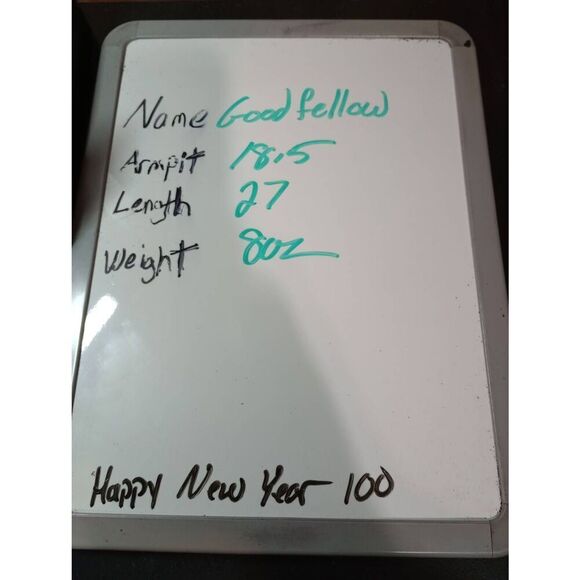 Name Goodfellow
Armpit 18.5
Length 27
Weight 8oz
Happy New Year 100